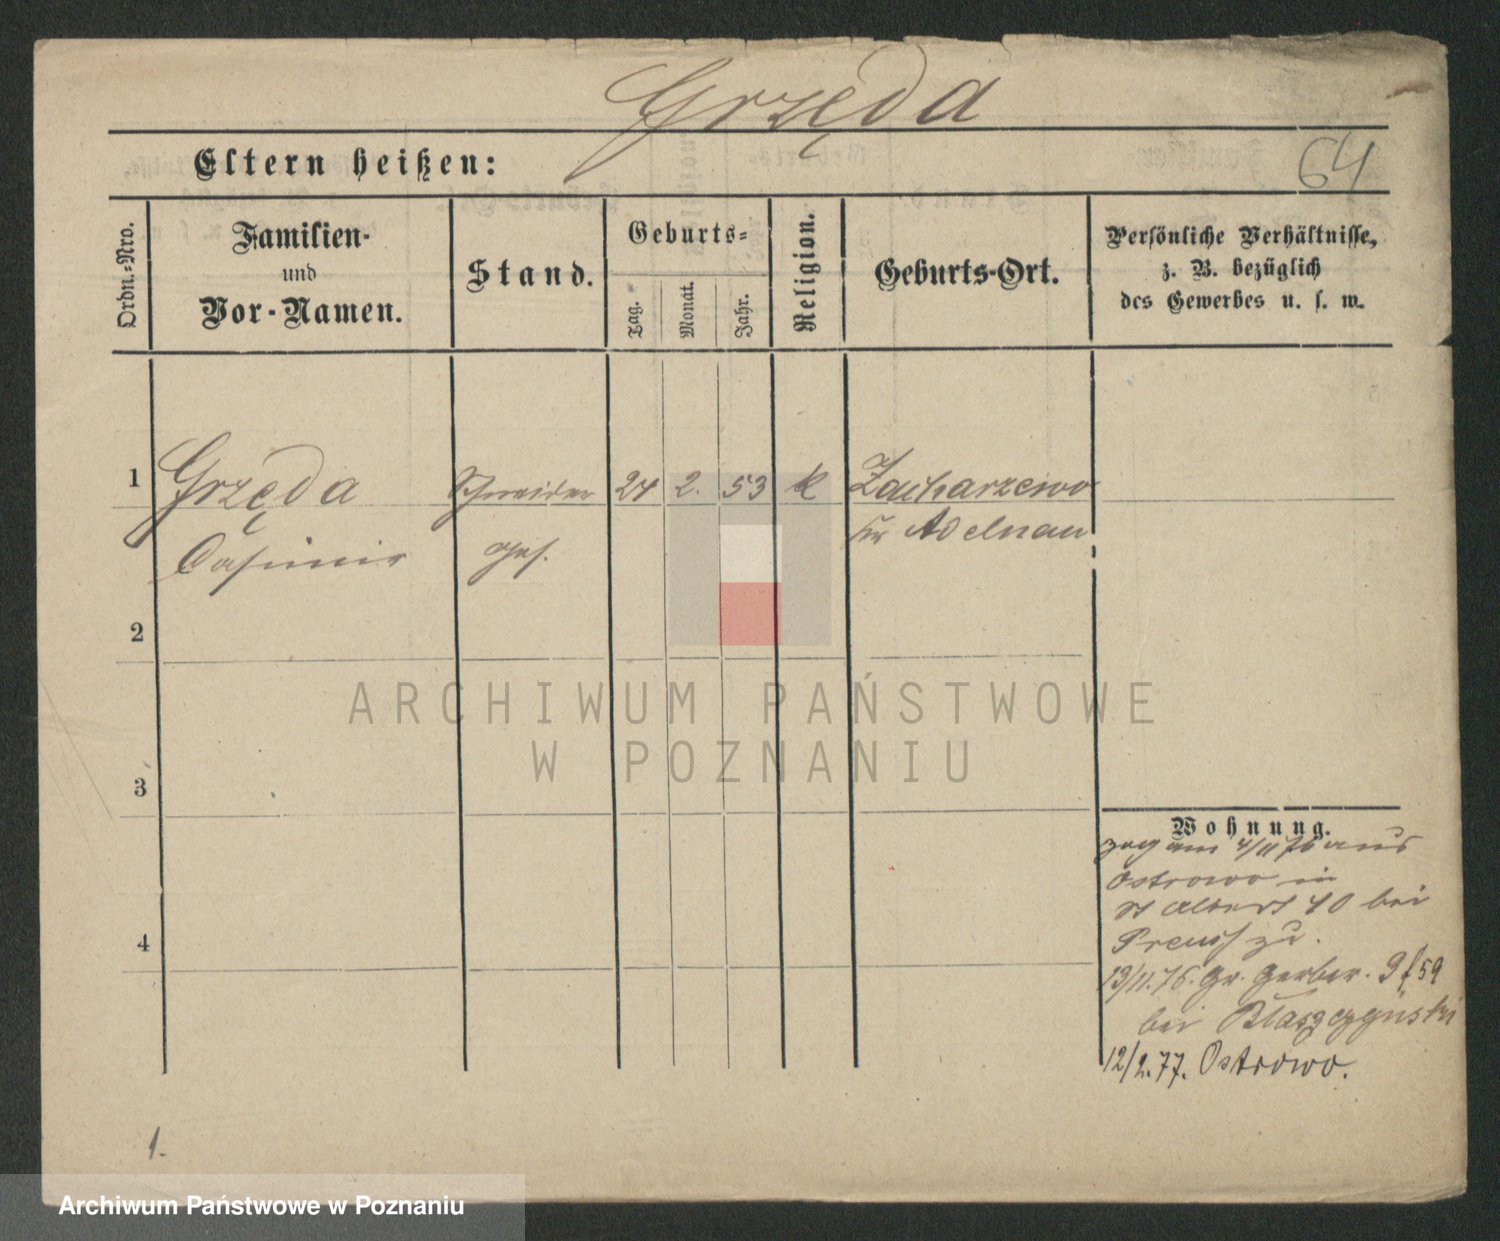 Grzęda
Eltern heißen:
64
Ordn.-Nro.
Familien-
und
Vor-Namen.
Stand.
Geburts-
Tag.
Monat.
Jahr.
Religion.
Geburts-Ort.
Persönliche Verhältnisse,
z. B. bezüglich
des Gewerbes u. s. w.
1 Grzęda Schneider 24 2. 53 k Zacharzewo
Casimir Ges. Kr Adelnau
2
3
4
Wohnung.
zog am 4/11 76 aus
Ostrowo in
St Albert 40 bei
Preuss zu.
13/11.76. Gr. Gerber. 59
bei Błaszczyński
12/2.77. Ostrowo.
1.
ARCHIWUM PAŃSTWOWE
W POZNANIU
Archiwum Państwowe w Poznaniu